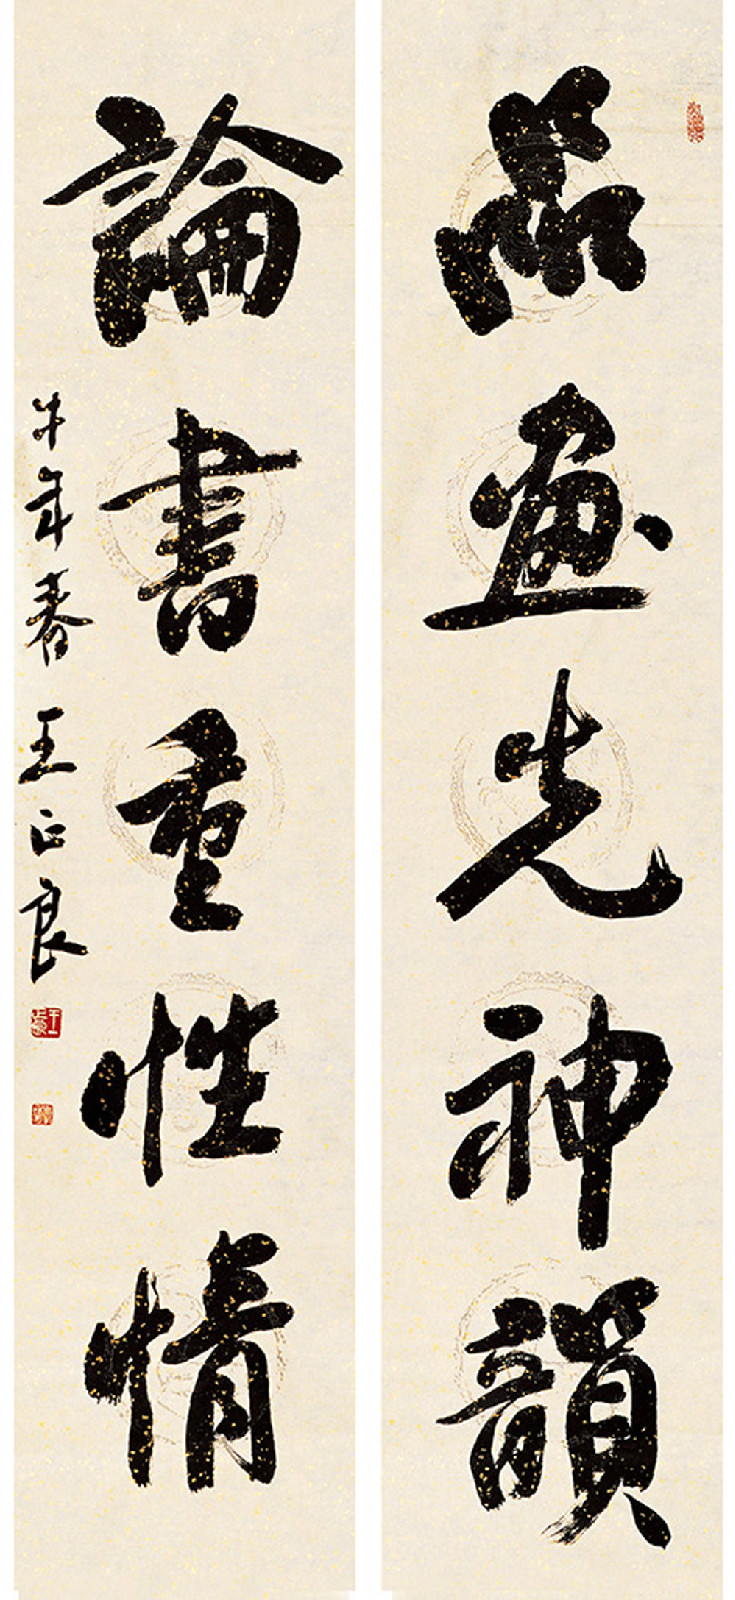 品畫先神韻
論書重性情
牛年春王正良